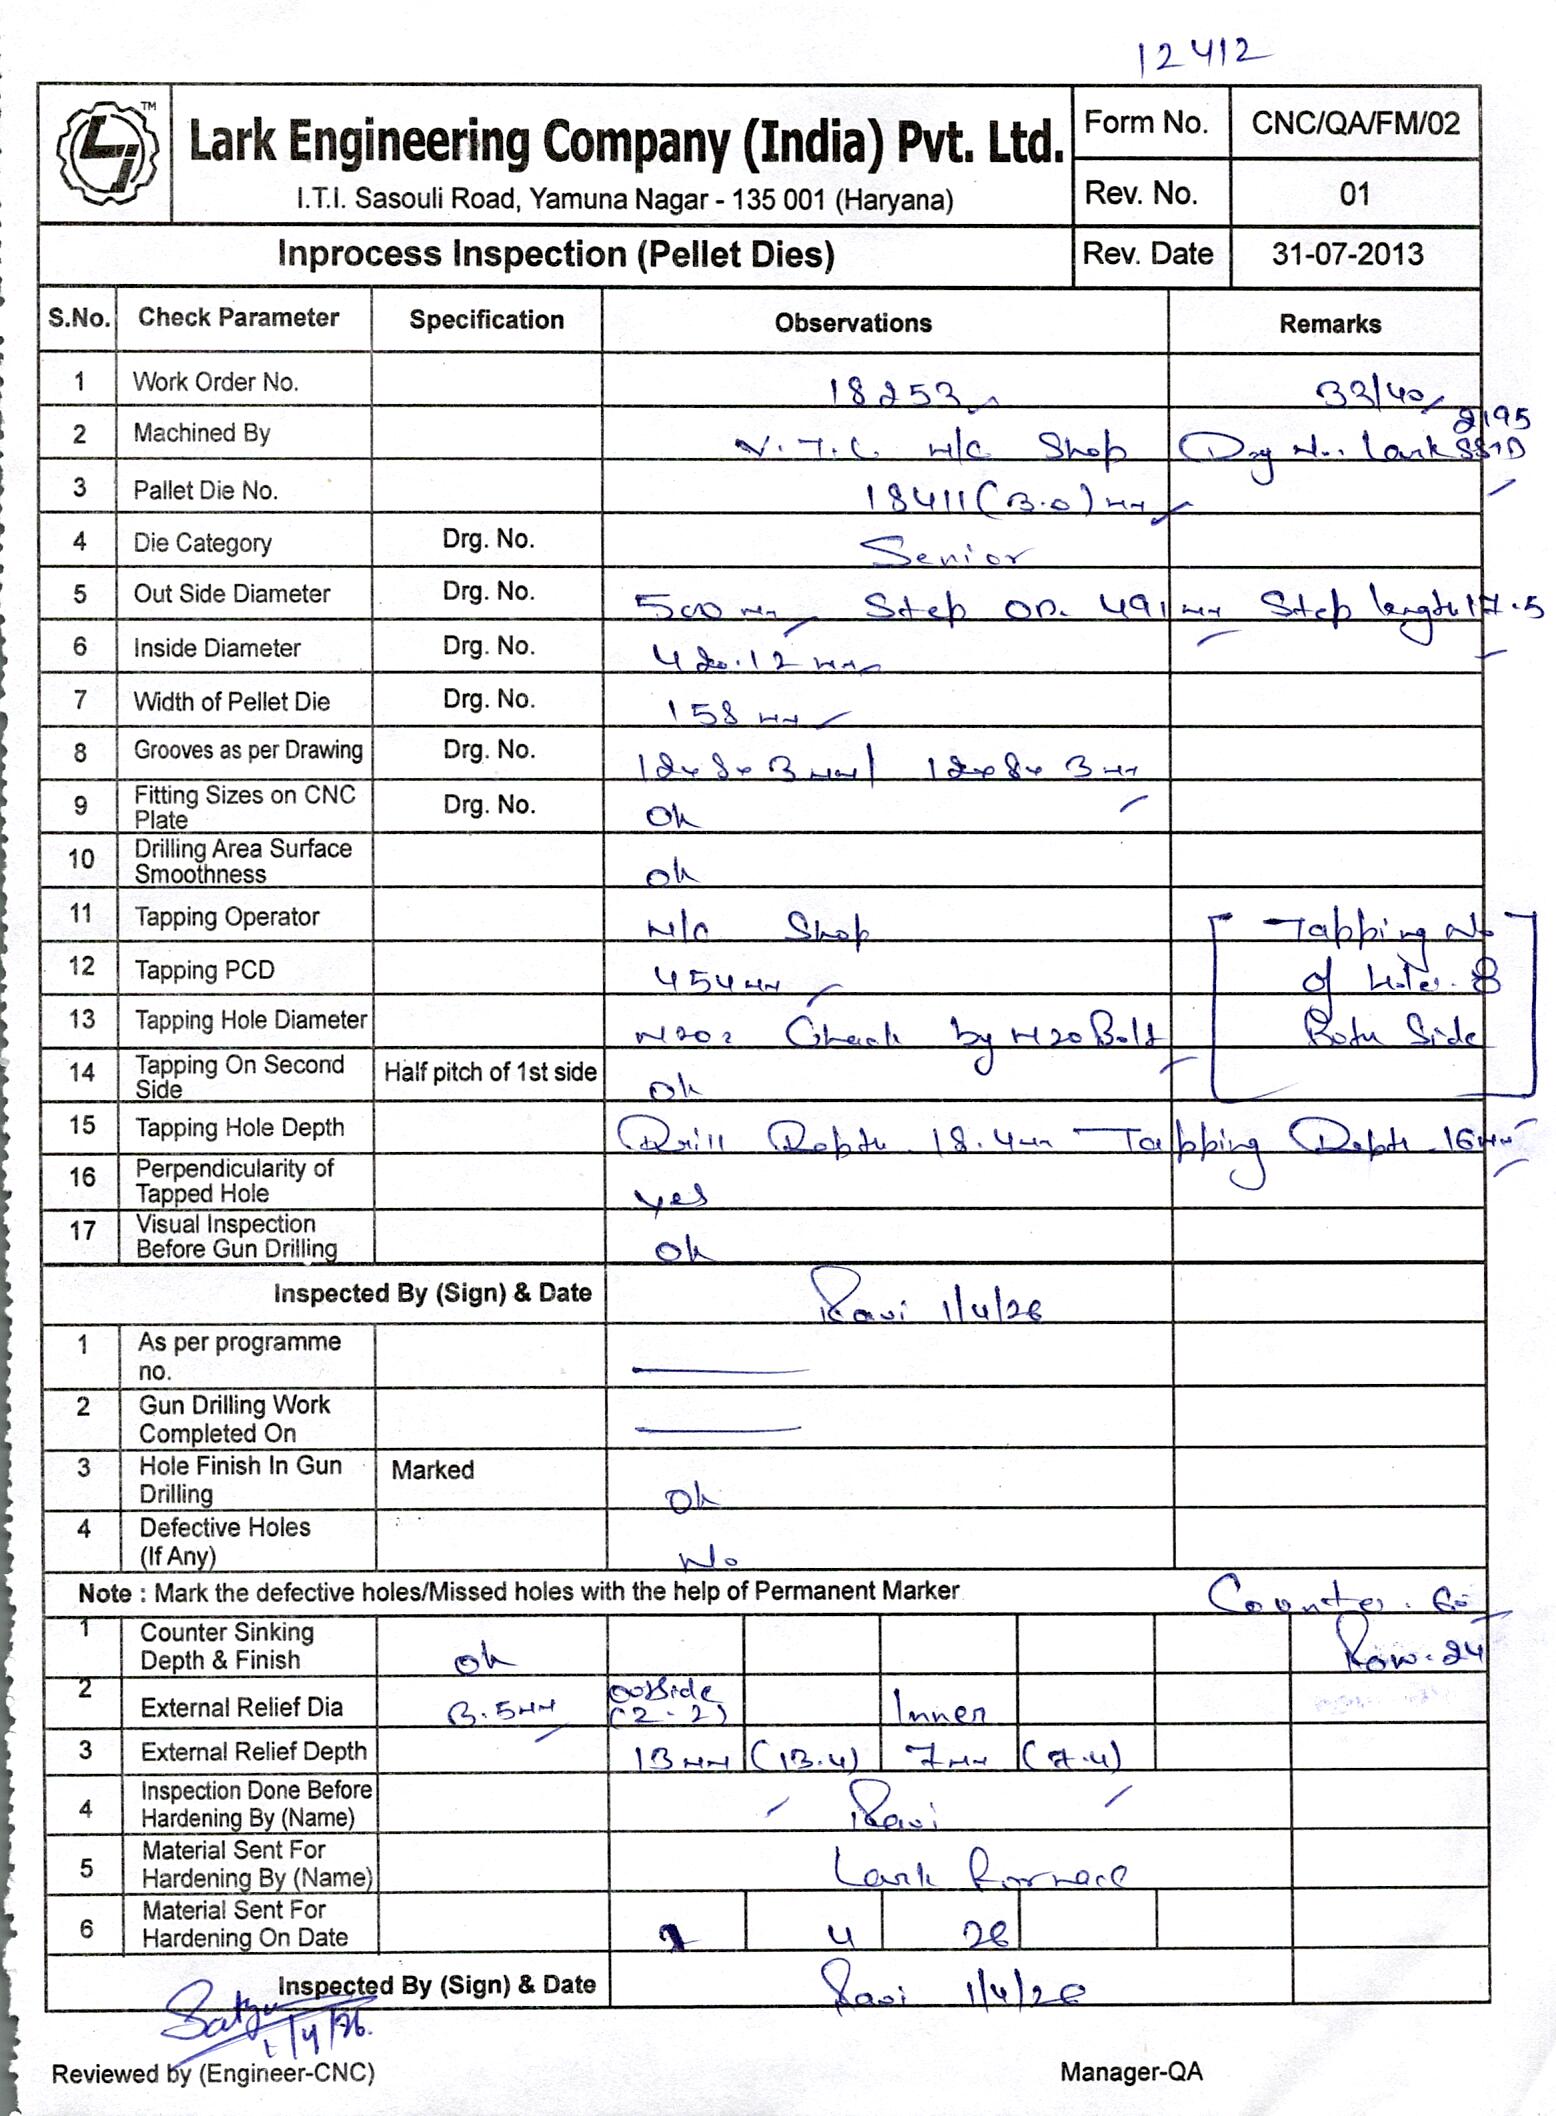 12412
TM
LJ
Lark Engineering Company (India) Pvt. Ltd.
I.T.I. Sasouli Road, Yamuna Nagar - 135 001 (Haryana)
Form No. CNC/QA/FM/02
Rev. No. 01
Inprocess Inspection (Pellet Dies) Rev. Date 31-07-2013
S.No. Check Parameter Specification Observations Remarks
1 Work Order No. 18253 33/40
2 Machined By V.T.L M/C Shop Drg No. Lark SS1D 2195
3 Pallet Die No. 18411 (3.0) mm
4 Die Category Drg. No. Senior
5 Out Side Diameter Drg. No. 500 mm Step OD. 491 mm Step length 17.5
6 Inside Diameter Drg. No. 420.12 mm
7 Width of Pellet Die Drg. No. 158 mm
8 Grooves as per Drawing Drg. No. 12x8x3 mm / 12x8x3 mm
9 Fitting Sizes on CNC Plate Drg. No. Ok
10 Drilling Area Surface Smoothness ok
11 Tapping Operator M/C Shop Tapping No
12 Tapping PCD 454 mm of Holes. 8
13 Tapping Hole Diameter M20 Check by M20 Bolt Both Side
14 Tapping On Second Side Half pitch of 1st side Ok
15 Tapping Hole Depth Drill Depth 18.4 mm Tapping Depth 16 mm
16 Perpendicularity of Tapped Hole yes
17 Visual Inspection Before Gun Drilling Ok
Inspected By (Sign) & Date Ravi 1/4/26
1 As per programme no.
2 Gun Drilling Work Completed On
3 Hole Finish In Gun Drilling Marked Ok
4 Defective Holes (If Any) No
Note : Mark the defective holes/Missed holes with the help of Permanent Marker Counter. 60
1 Counter Sinking Depth & Finish ok Row. 24
2 External Relief Dia 3.5 mm Outside (2-2) Inner
3 External Relief Depth 13 mm (13.4) 7 mm (7.4)
4 Inspection Done Before Hardening By (Name) Ravi
5 Material Sent For Hardening By (Name) Lark Furnace
6 Material Sent For Hardening On Date 4 26
Inspected By (Sign) & Date Ravi 1/4/26
1/4/26.
Reviewed by (Engineer-CNC) Manager-QA